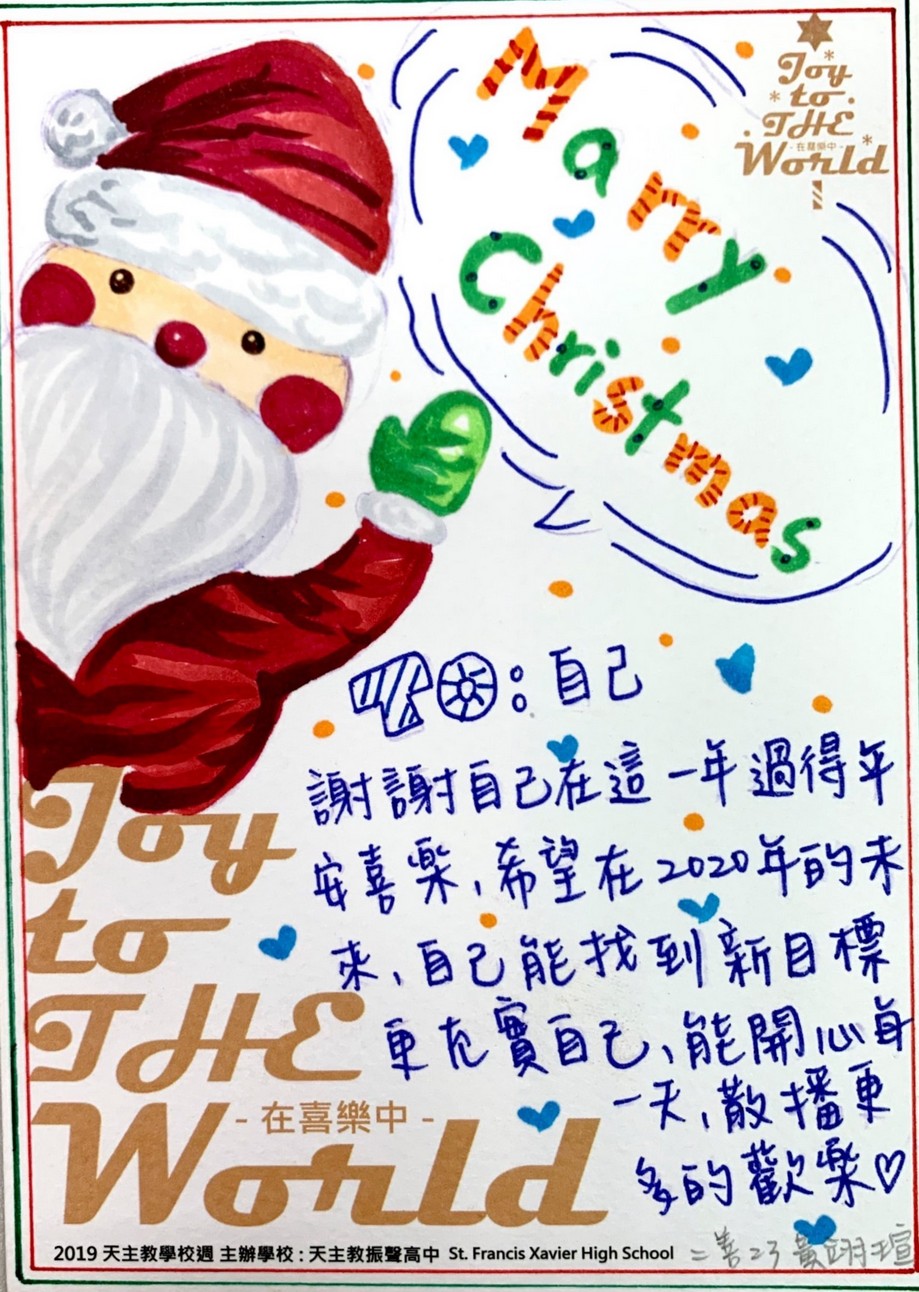 Marry
Christmas
Joy
to
THE
- 在喜樂中 -
World
TO：自己
謝謝自己在這一年過得年
安喜樂，希望在2020年的未
來，自己能找到新目標
更充實自己，能開心每
一天，散播更
多的歡樂♡
Joy
to
THE
- 在喜樂中 -
World
2019 天主教學校週 主辦學校：天主教振聲高中 St. Francis Xavier High School
二善23 黃翊瑄